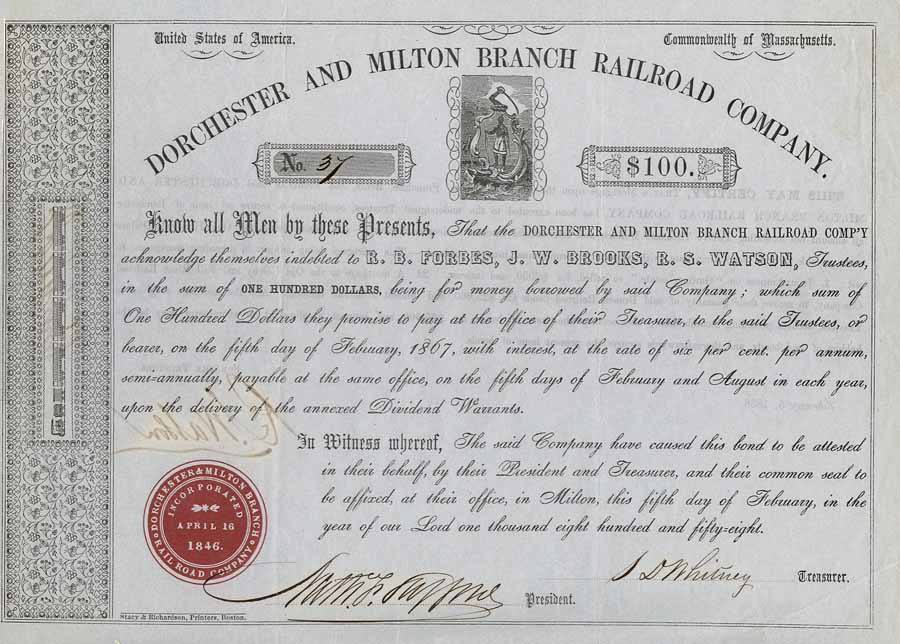 United States of America.
Commonwealth of Massachusetts.
DORCHESTER AND MILTON BRANCH RAILROAD COMPANY.
No. 37
$100.
Know all Men by these Presents, That the DORCHESTER AND MILTON BRANCH RAILROAD COMP'Y
acknowledge themselves indebted to R. B. FORBES, J. W. BROOKS, R. S. WATSON, Trustees,
in the sum of ONE HUNDRED DOLLARS, being for money borrowed by said Company; which sum of
One Hundred Dollars they promise to pay at the office of their Treasurer, to the said Trustees, or
bearer, on the fifth day of February, 1867, with interest, at the rate of six per cent. per annum,
semi-annually, payable at the same office, on the fifth days of February and August in each year,
upon the delivery of the annexed Dividend Warrants.
In Witness whereof, The said Company have caused this bond to be attested
in their behalf, by their President and Treasurer, and their common seal to
be affixed, at their office, in Milton, this fifth day of February, in the
year of our Lord one thousand eight hundred and fifty-eight.
DORCHESTER & MILTON BRANCH
RAILROAD COMPANY
INCORPORATED
APRIL 16
1846.
S D Whitney Treasurer.
President.
Stacy & Richardson, Printers, Boston.